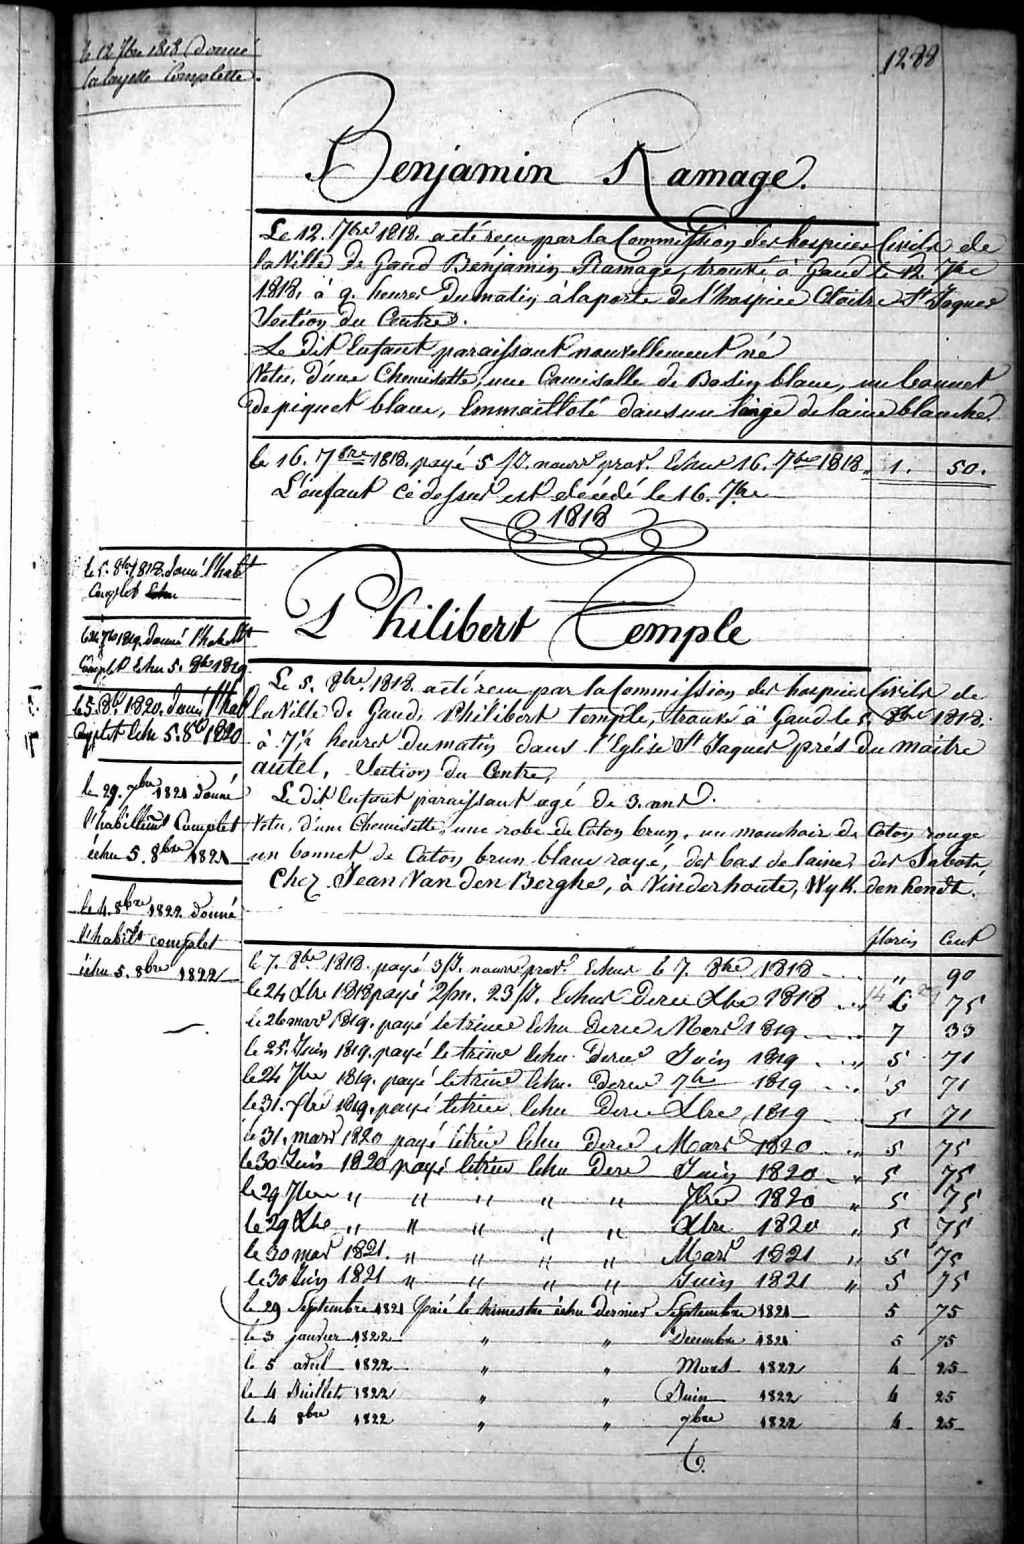 le 12 7bre 1818 donné
la layette Complette.
1288
Benjamin Ramage.
Le 12. 7bre 1818. a été reçu par la Commission des hospices Civils de
la Ville de Gand Benjamin Ramage, trouvé à Gand le 12. 7bre
1818. à 9. heures du matin à la porte de l'hospice St Jaques
Section du Centre.
Le dit Enfant paraissant nouvellement né
Vetu, d'une Chemisette, une Camisolle de Basin blanc, un bonnet
de piquet blanc, Emmaillotté dans un lange de laine blanche.
le 16. 7bre 1818. payé 5 J. nourr prov. Echus 16. 7bre 1818 " 1. 50.
L'enfant ci dessus est décédé le 16. 7bre
1818
le 5. 8bre 1818. donné l'habt
Complet
Philibert Temple
le 24 7bre 1819. donné l'habt
Complet Echu 5. 8bre 1819
le 5. 8bre 1820. donné l'hab
Complet Echu 5. 8bre 1820
le 29. 7bre 1821 donné
l'habillemt Complet
échu 5. 8bre 1821
le 4. 8bre 1822 donné
l'habilt complet
échu 5. 8bre 1822
Le 5. 8bre. 1818. a été reçu par la Commission des hospices Civils de
la Ville de Gand, Philibert Temple, trouvé à Gand le 5. 8bre 1818.
à 7½ heures du matin dans l'Eglise St Jaques prés du maitre
autel, Section du Centre,
Le dit Enfant paraissant agé de 3. ans.
Vetu, d'une Chemisette, une robe de Coton brun, un mouchoir de Coton rouge
un bonnet de Coton brun blanc rayé, des bas de laine, des Sabots,
Chez Jean Van den Berghe, à Vinderhoute, Wyk. den hendt.
florin Cent
le 7. 8bre 1818. payé 3 J. nourr prov. Echus le 7. 8bre 1818 " 90
le 24 Xbre 1818 payé 2/m. 23 J. Echus Dernr Xbre 1818 " 6 75
le 26 mars 1819. payé le trimre Echu Dernr Mars 1819 " 7 33
le 25. Juin 1819. payé le trimre Echu Dernr Juin 1819 " 5 71
le 24 7bre 1819. payé le trimre Echu. Dernr 7bre 1819 " 5 71
le 31. Xbre 1819. payé le trimre Echu Dernr Xbre 1819 5 71
le 31. mars 1820 payé le trimre Echu Dernr Mars 1820 " 5 75
le 30 Juin 1820 payé le trimre Echu Dernr Juin 1820 " 5 75
le 29 7bre " " " " " 7bre 1820 " 5 75
le 29 Xbre " " " " " Xbre 1820 " 5 75
le 30 mars 1821. " " " " Mars 1821 " 5 75
le 30 Juin 1821 " " " " Juin 1821 " 5 75
le 29 Septembre 1821 Paié le trimestre échu dernier Septembre 1821 5 75
le 3 janvier 1822 " " Decembre 1821 5 75
le 5 avril 1822 " " Mars 1822 4 25
le 4 Juillet 1822 " " Juin 1822 4 25
le 4 8bre 1822 " " 7bre 1822 4 25